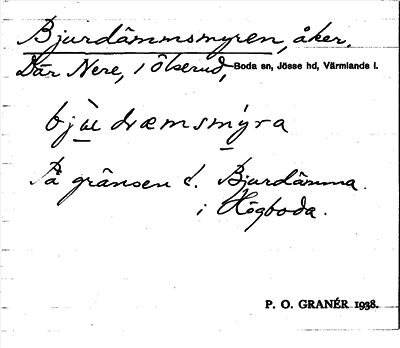 Bjurdämmsmyren, åker.
Där Nere, i Ölserud, Boda sn, Jösse hd, Värmlands l.
På gränsen t. Bjurdämma.
i Högboda.
P. O. GRANÉR 1938.